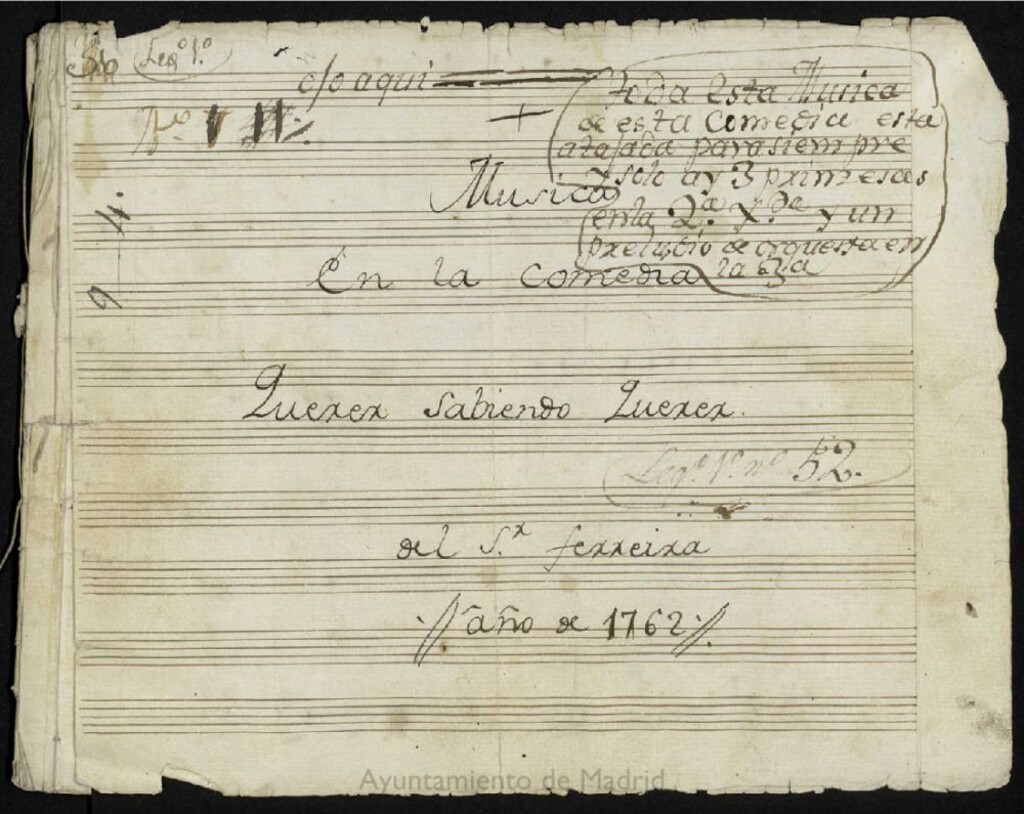 Leg.º 1.º
aqui
Toda esta Musica
de esta Comedia esta
atajada para siempre
y solo ay 3 primeras
en la 2.ª X.da y un
preludio de orquesta en
la 3.a
Musica
En la Comedia
9 4.
Querer Sabiendo Querer.
Leg.º 1.º nº 52.
del S.r ferreira
año de 1762
Ayuntamiento de Madrid